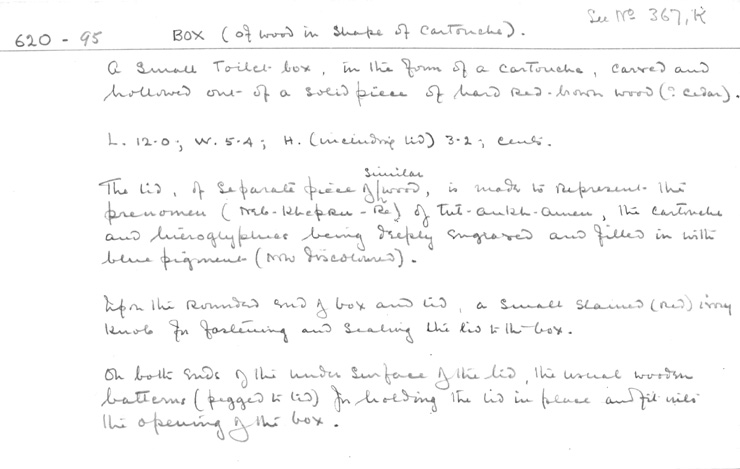 See No 367, K
620 - 95 BOX (of wood in shape of Cartouche).
A small Toilet-box, in the form of a cartouche, carved and
hollowed out of a solid piece of hard red-brown wood (? cedar).
L. 12.0; W. 5.4; H. (including lid) 3.2; cents.
The lid, of separate piece of similar wood, is made to represent the
prenomen (Neb-Khepru-Re) of Tut-ankh-amen, the cartouche
and hieroglyphics being deeply engraved and filled in with
blue pigment (now discoloured).
Upon the rounded end of box and lid, a small stained (red) ivory
knob for fastening and sealing the lid to the box.
On both ends of the under surface of the lid, the usual wooden
battens (pegged to lid) for holding the lid in place and fit into
the opening of the box.